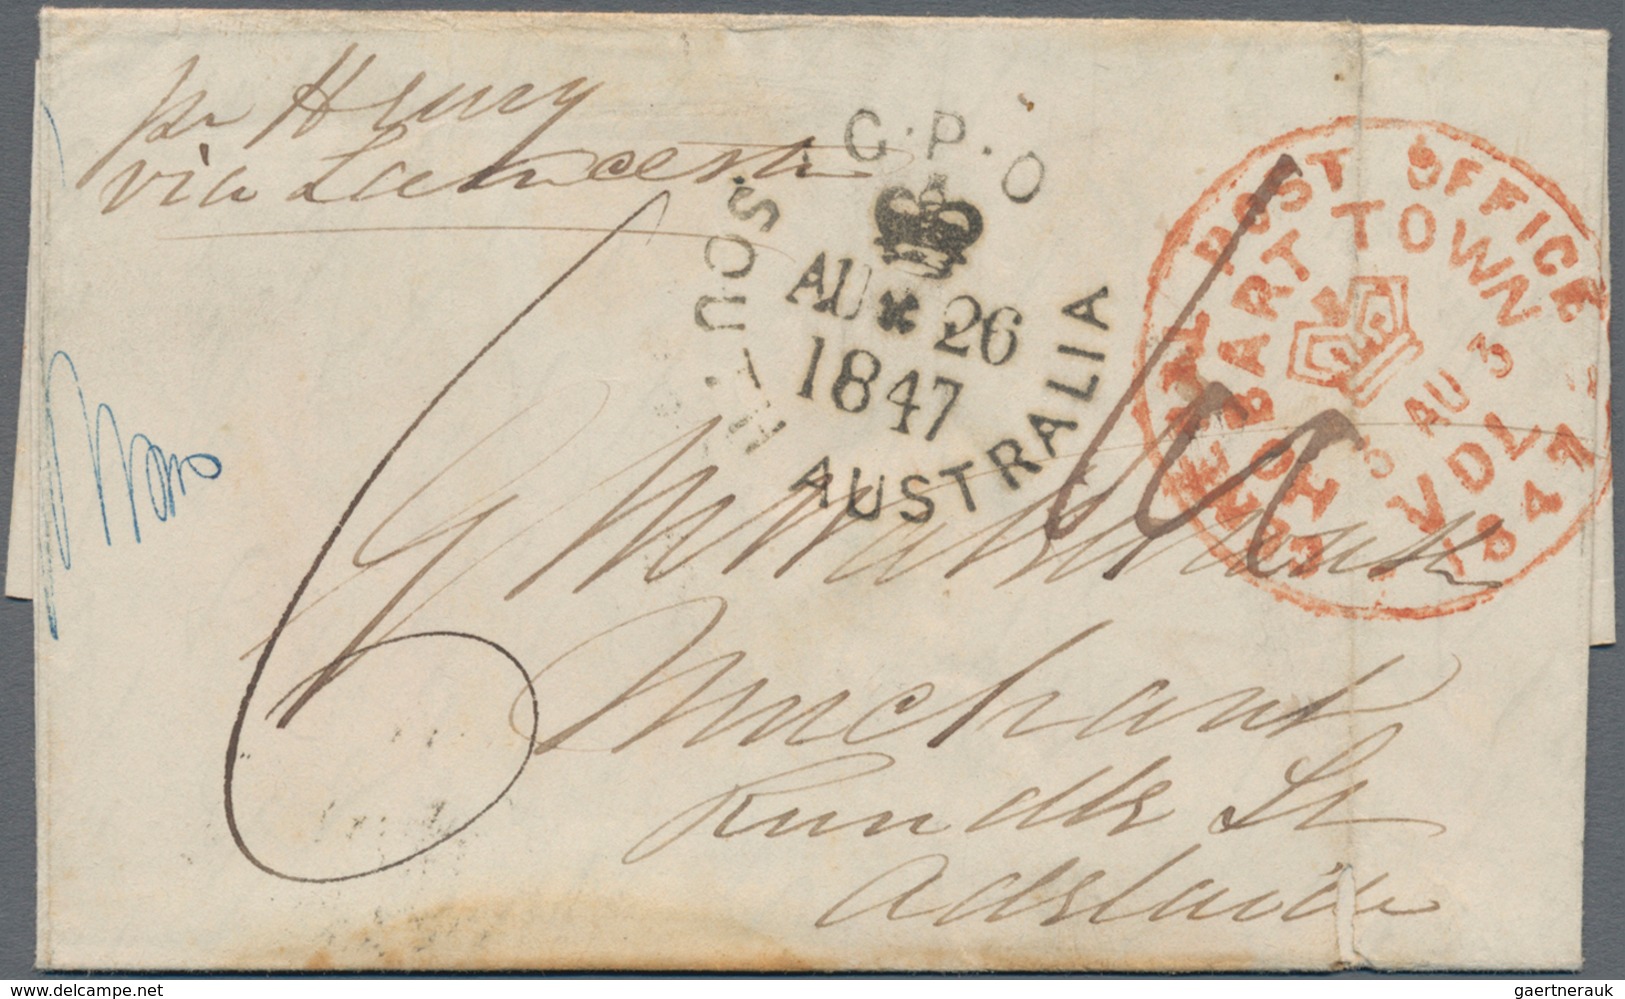 pr Henry
via Launceston
G·P·O
SOUTH AUSTRALIA
AU 26
1847
GENERAL POST OFFICE
HOBART TOWN
AU 3
VDL
1847
6
Merchant
Rundle St
Adelaide
www.delcampe.net
gaertnerauk